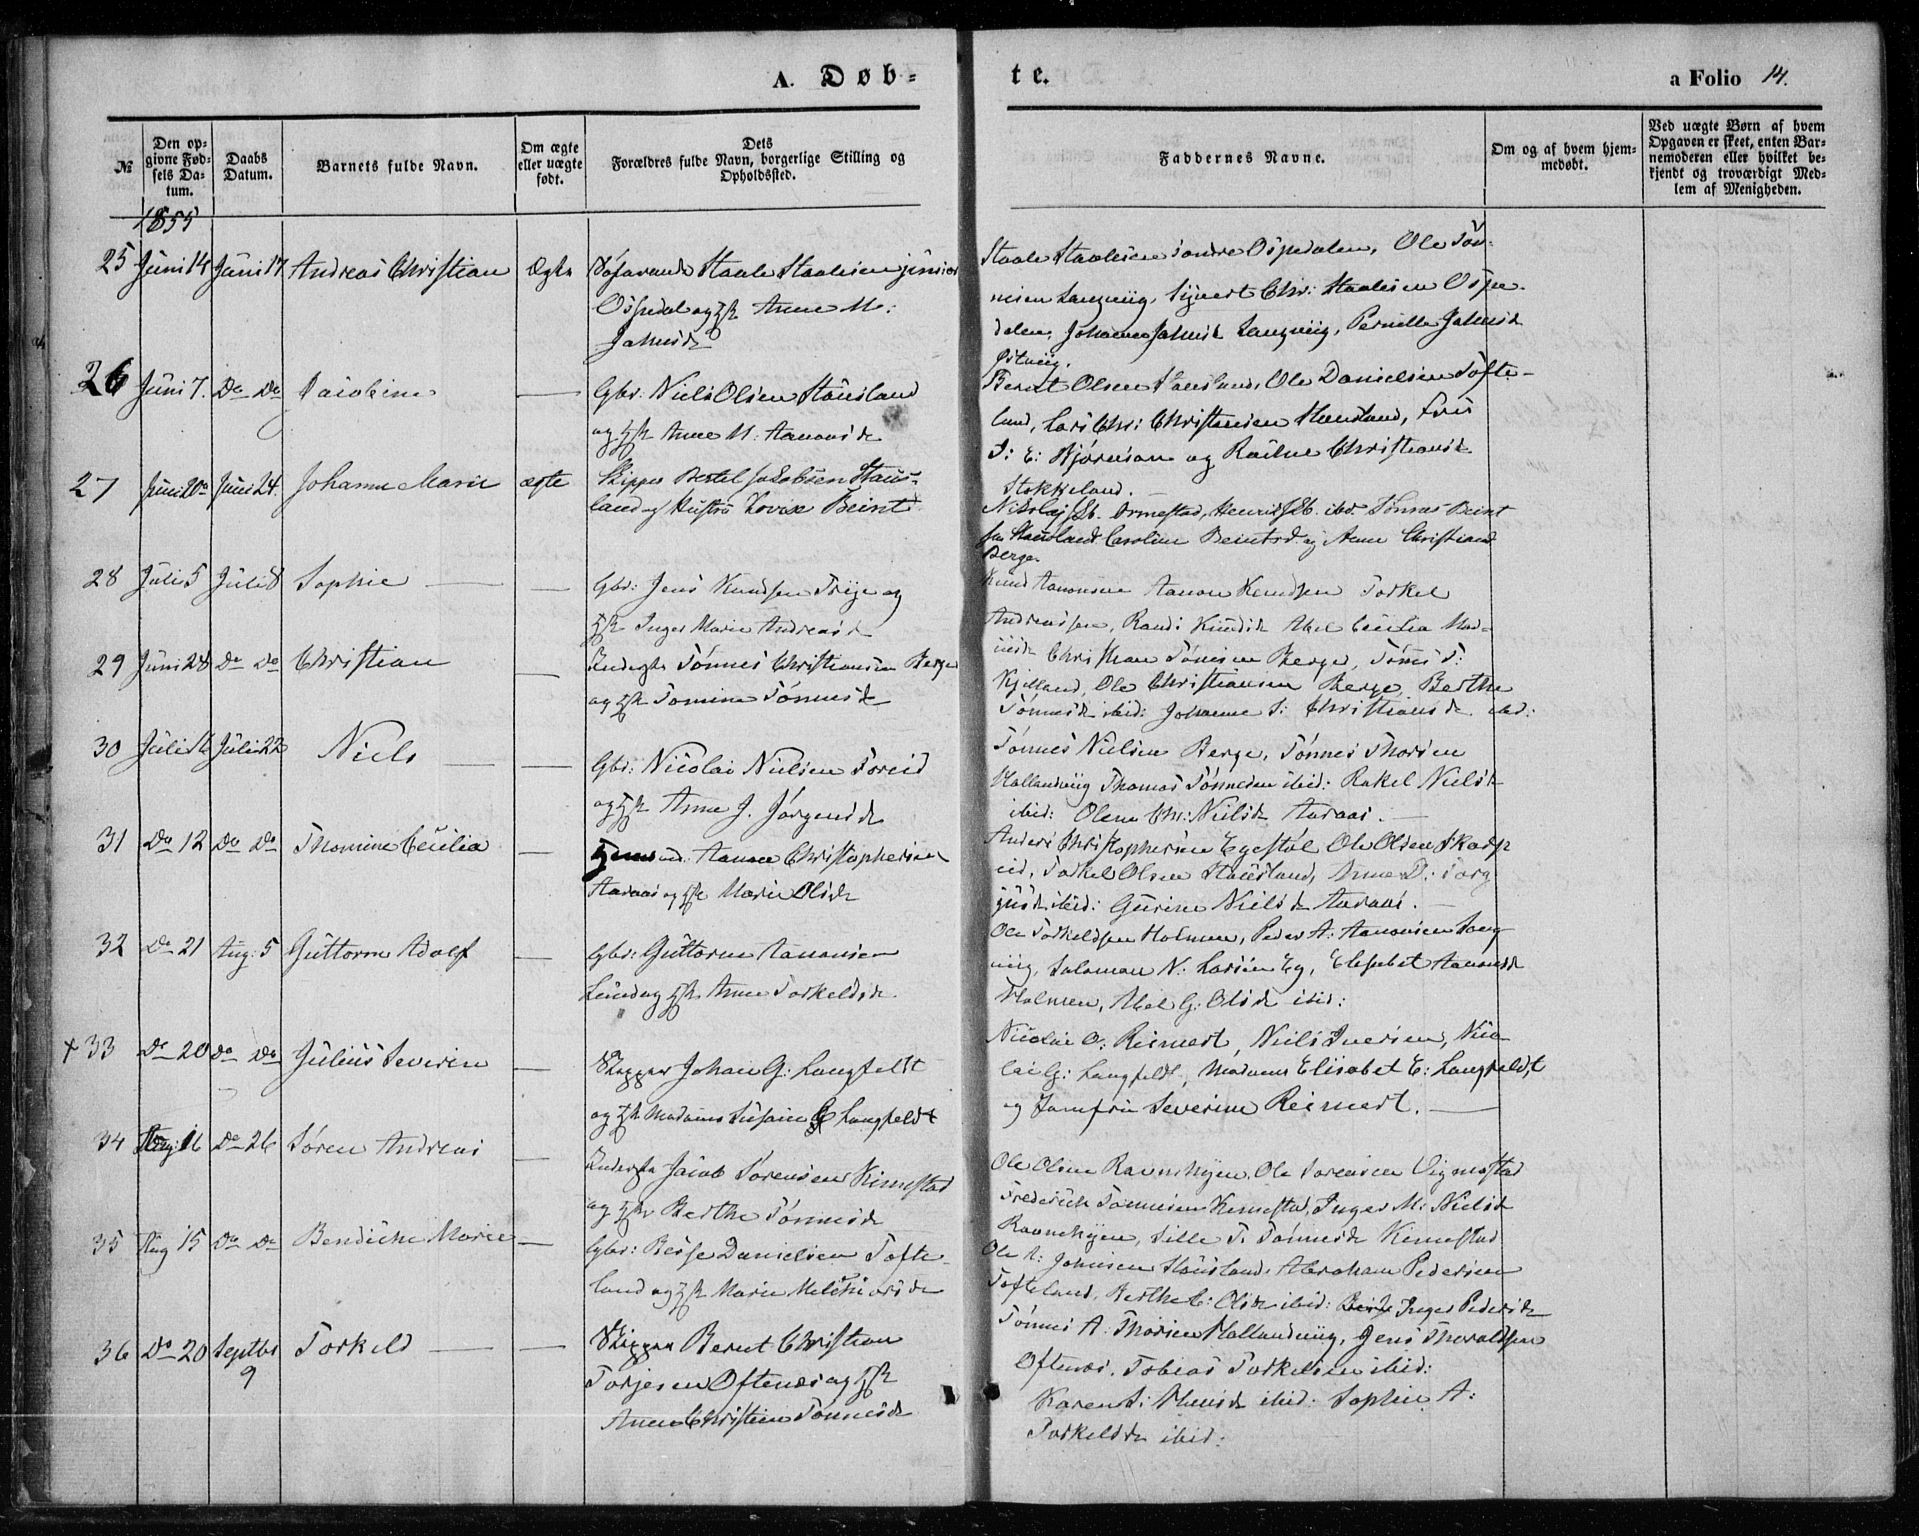 A. Døb-
te.
a Folio 14.
№
Den op-
givne Fød-
sels Da-
tum.
Daabs
Datum.
Barnets fulde Navn.
Om ægte
eller uægte
født.
Dets
Forældres fulde Navn, borgerlige Stilling og
Opholdssted.
Faddernes Navne.
Om og af hvem hjem-
medøbt.
Ved uægte Børn af hvem
Opgaven er skeet, enten Bar-
nemoderen eller hvilket be-
kjendt og troværdigt Med-
lem af Menigheden.
1855
25 Juni 14 Juni 17 Andreas Christian Ægte Søfarende Staale Staalesen junior
Ospedal og Anne M:
Staale Staalesen søndre Ospedalen, Ole Tøn-
nesen Langeviig, Sivert Chr: Staalesen Ospe-
dalen, Langeviig, Pernille
26 Juni 7. Do Do Jacobine — Gbr: Niels Olsen Stausland
og Anne M. Aanonsd.
Bernt Olsen Stausland, Ole Danielsen Tofte-
land, Lars Chr: Christensen Stausland,
J: E: Bjørnson og Christiansd.
Stokkeland.
27 Juni 20de Juni 24. Johanne Marie ægte Skipper Bertel Jakobsen Staus-
land og Hustro Lovise Beint
Nikolaj Ormestad, ibd. Tønnes Beint
sen Stausland Caroline Beintsd og Anne Christiansd
Berge
28 Juli 5 Juli 8 Sophie — — Gbr: Jens Knudsen og
Inger Marie Andreasd.
Knud Aanonsen Aanon Knudsen Torkel
Andreassen, Randi Knudsd. Abel Cecilia
29 Juni 28 Do Do Christian — Inderste Tønnes Christiansen Berge
og Tomine Tønnesd.
Christian Tønnesen Berge, Tønnes T:
Ole Christiansen Berge, Berthe
Tønnesd. ibid: Johanne T: Christiansd. ibid:
30 Juli 16 Juli 22 Niels — — Gbr: Nicolai Nielsen
og Anne J. Jørgensd.
Tønnes Nielsen Berge, Tønnes Thorsen
Hallandviig Thomas Tønnesen ibid: Rakel Nielsd.
ibid: Olene Chr: Nielsd. Aaraas. —
31 Do 12 Do Do Thomine Cecilia — Aanon Christophersen
Aaraas og Marie Olsd.
Anders Christophersen Egestøl, Ole Olsen Skarp
eid, Torkel Olsen Stausland, Anne D: Torg
ibid: Gurine Nielsd. Aaraas. —
32 Do 21 Aug: 5 Guttorm Adolf — Gbr: Guttorm Aanonsen
Lund og Anne Torkeldsd.
Ole Torkeldsen Holmen, Peder A: Aanonsen Lang
viig, Salomon N: Larsen Eg, Elisabet Aanonsd.
Holmen, Abel G: Olsd. ibid:
+ 33 Do 20 Do Do Julius Severin — Skipper Johan G: Langfeldt
og Madame Susanne Langfeldt
Nicolai O: Reimert, Niels Iversen, Nico-
lai G: Langfeldt, Madame Elisabet E: Langfeldt
og Jomfru Severine Reimert. —
34 Aug: 16 Do 26 Søren Andreas — Inderste Jacob Sørensen Kimestad
og Berthe Tønnesd.
Ole Olsen Ravnehejen, Ole Sørensen Vigmostad
Frederich Tønnesen Kimestad, Inger M: Nielsd.
Ravnehejen, Sille T: Tønnesd. Kimestad
35 Aug 15 Do Do Bendiche Marie — Gbr: Berge Danielsen Tofte-
land og Marie Melchiorsd.
Ole A: Johnsen Stausland, Abraham Pedersen
Tofteland, Berthe C: Olsd. ibid: Inger Pedersd.
36 Do 20 Septbr 9 Torkeld — — Skipper Bernt Christian
Torjesen Oftenæs og
Anne Christine Tønnesd.
Tønnes A: Thorsen Hallandviig, Jens Thoraldsen
Oftenæs, Tobias Torkelsen ibid:
Karen ibid: Sophie A:
Torkeldsd. ibid: